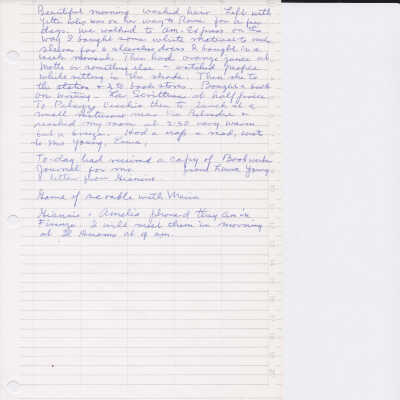 Beautiful morning washed hair. Left with
who was on her way to Rome for a few
days. We walked to Am. Express on the
way I bought some white material to make
sleeves for a sleeveless dress I bought in a
. Then had orange juice at
Motta or something else - watched people
while sitting in the shade. Then she to
the station & I to book stores. Bought a book
on writing - La Scrittura at half price
To Palazzo Vecchio then to lunch at a
small restaurant near Belvedere &
reached my room at 2:30 very warm
but a breeze. Had a nap & read, wrote
to Mrs Young,
To-day had received a copy of Book
Journal for me from Young.
& letter from
Game of with Maria
& Amelia phoned they are in
Firenze. I will meet them in morning
at Il Duomo at 9 am.